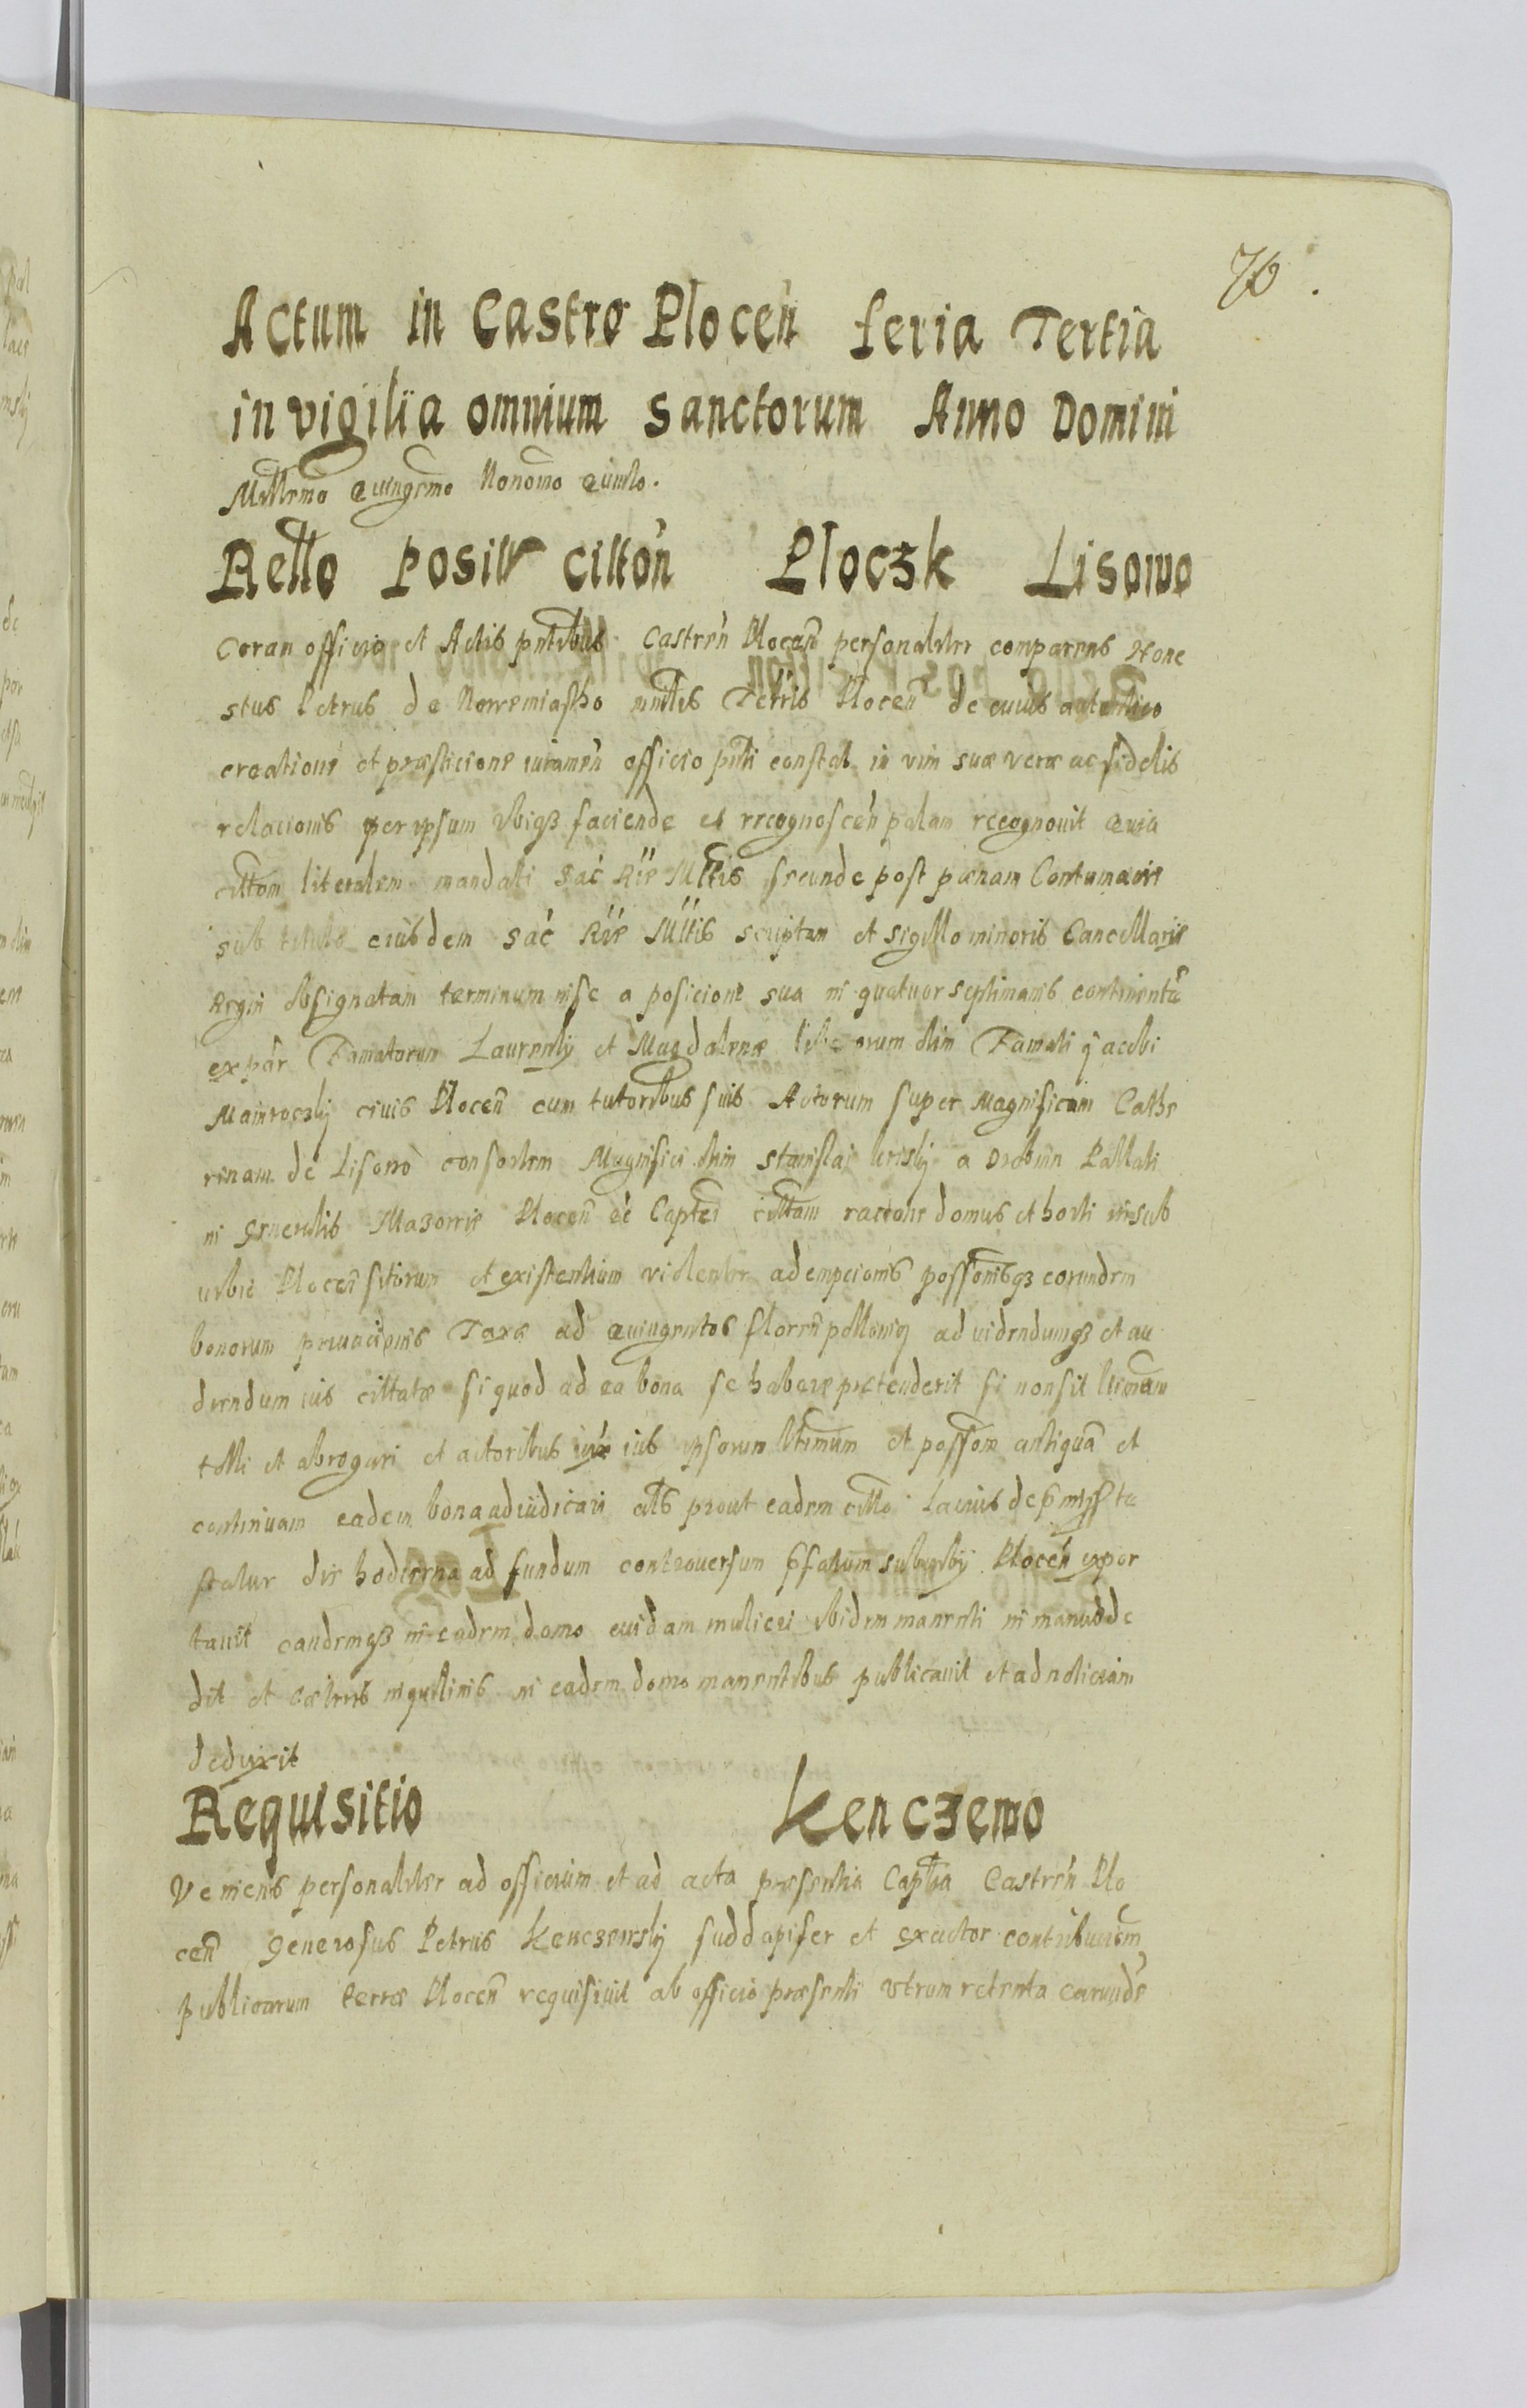 70.
Actum in Castro Plocen̄ feria Tertia
in vigilia omnium sanctorum Anno Domini
Millemo Quingemo Nonomo Quinto.
Rello Posit cittōn Ploczk Lisowo
Coram officio et Actis pntibus Castren̄ Plocen̄ personaliter comparens Hone
stus Petrus de Nowemiasto mnllis Terris Plocen̄ de cuius autentico
creatione et præsticione iuramen̄ officio pnti constat in vim suæ veræ ac fidelis
relacionis per ipsum ibiqȝ faciende et recognoscen̄ palam recognouit Quia
cittom literalem mandati Sac Rie Mttis secunde post pœnam Contumacie
sub titulo eiusdem Sac Rie Mttis scriptam et sigillo minoris Cancellarie
Regni obsignatam terminum in se a posicione sua in quatuor septimanis continentē
ex par Famatorum Laurentij et Magdalenæ liberorum olim Famati Jacobi
civis Plocen̄ cum tutoribus suis Actorum super Magnificam Cathe
rinam de Lisowo consortem Magnifici olim Stanislai a Drobnin Pallati
ni Generalis Mazowie Plocen̄ ec Captei cittam racione domus et horti in sub
urbie Plocen̄ sitorum et existentium violenter adempcionis possionisqȝ eorundem
bonorum priuacionis Taxæ ad Quingentos floren̄ pollonicɉ ad videndumqȝ et au
diendum ius cittatæ si quod ad ea bona se habere pretenderit si non sit ltimam
tolli et abrogari et actoribus iure ius ipsorum ltimum et possione antiquā et
continuam eadem bona adiudicari als prout eadem citto Lacius de pmiss te
statur die hodierna ad fundum controuersum pfatum suburbij Plocen̄ expor
tauit eandemqȝ in eadem domo cuidam mulieri ibidem manenti in manus de
dit et cæteris inquilinis in eadem domo manentibus publicauit et ad noticiam
deduxit
Requisitio Kenczewo
Veniens personaliter ad officium et ad acta præsentia Captia Castren̄ Plo
cen̄ Generosus Petrus Kenczewskj suddapifer et exactor contribucionm
publicarum Terræ Plocen̄ requisiuit ab officio præsenti vtrum retenta earundē